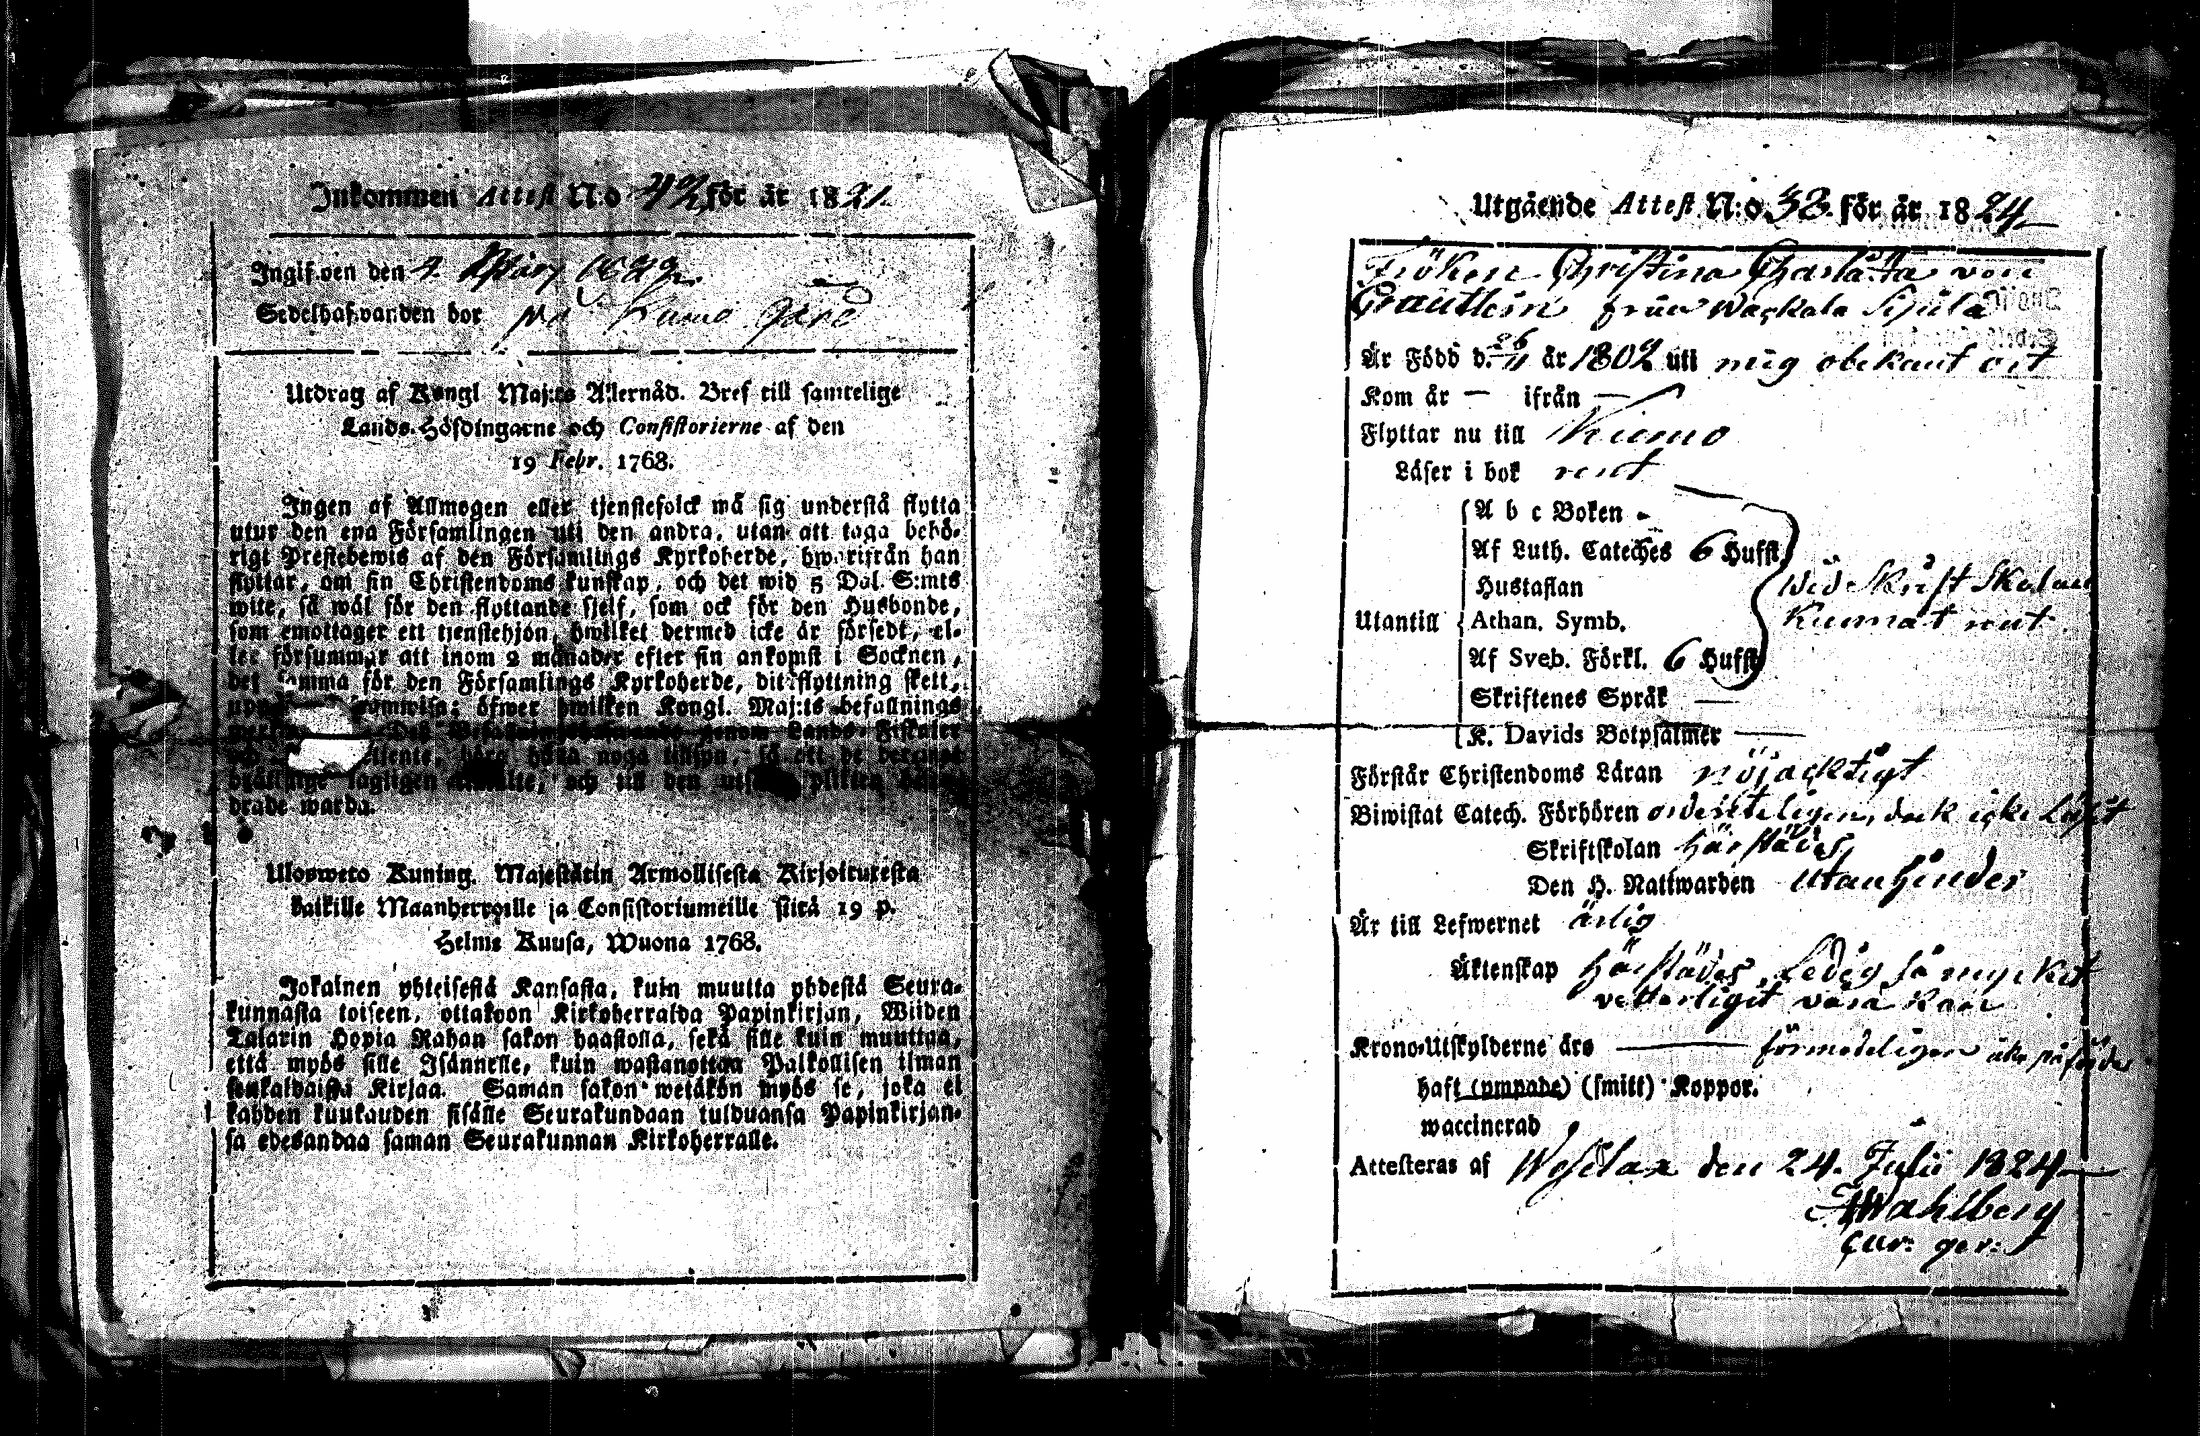 Inkommen Attest N:o 42 för år 1821.
Ingifven den 4.
Sedelhafvanden bor på Kumo gård
Utdrag af Kongl Maj:ts Allernåd. Bref till samtelige
Lands-Höfdingarne och Consistorierne af den
19 Febr. 1768.
Ingen af Allmogen eller tjenstefolck må sig understå flytta
utur den ena Församlingen uti den andra, utan att taga behö-
rigt Prestebewis af den Församlings Kyrkoherde, hwarifrån han
flyttar, om sin Christendoms kunskap, och det wid 5 Dal. S:mts
wite, så wäl för den flyttande sjelf, som ock för den Husbonde,
som emottager ett tjenstehjon, hwilket dermed icke är försedt, el-
ler försummar att inom 2 månader efter sin ankomst i Socknen,
det samma för den Församlings Kyrkoherde, dit flyttning skett,
öfwer hwilken Kongl. Maj:ts befallnings
genom Lands-Fiskaler
hålla noga tillsyn, så att de
lagligen och till den
drade warda.
Ulosweto Kuning. Majestätin Armollisesta Kirjoituxesta
kaikille Maanherroille ja Consistoriumeille siitä 19 p.
Helme Kuusa, Wuona 1768.
Jokainen yhteisestä Kansasta, kuin muutta yhdestä Seura-
kunnasta toiseen, ottakoon Kirkoherralda Papinkirjan, Wiiden
Talarin Hopia Rahan sakon haastolla, sekä sille kuin muuttaa,
että myös sille Isännelle, kuin wastanottaa Palkollisen ilman
senkaldaista Kirjaa. Saman sakon wetäkön myös se, joka ei
kahden kuukauden sisälle Seurakundaan tulduansa Papinkirjan-
sa edesandaa saman Seurakunnan Kirkoherralle.
Utgående Attest N:o 38. för år 1824
Fröken Christina Charlåtta von
från Wackala
Är Född d. 26/11 år 1802 uti mig obekant ort
Kom år — ifrån —
Flyttar nu till Kumo
Läser i bok rent
A b c Boken
Af Luth. Cateches 6 Hufst.
Hustaflan
wid Skrift Skolan
Utantill Athan. Symb.
kunnat rent
Af Sveb. Förkl. 6 Hufst.
Skriftenes Språk —
K. Davids Botpsalmer —
Förstår Christendoms Läran nöjacktigt
Biwistat Catech. Förhören ordenteligen, dock icke läst
Skriftskolan härstädes
Den H. Nattwarden utan hinder
Är till Lefwernet ärlig
Äktenskap härstädes ledig så mycket
vetterligit vara kan
Krono-Utskylderne års — förmodeligen
haft (ympade) (smitt) Koppor.
waccinerad
Attesteras af Wesilax den 24. Julii 1824
Wahlberg